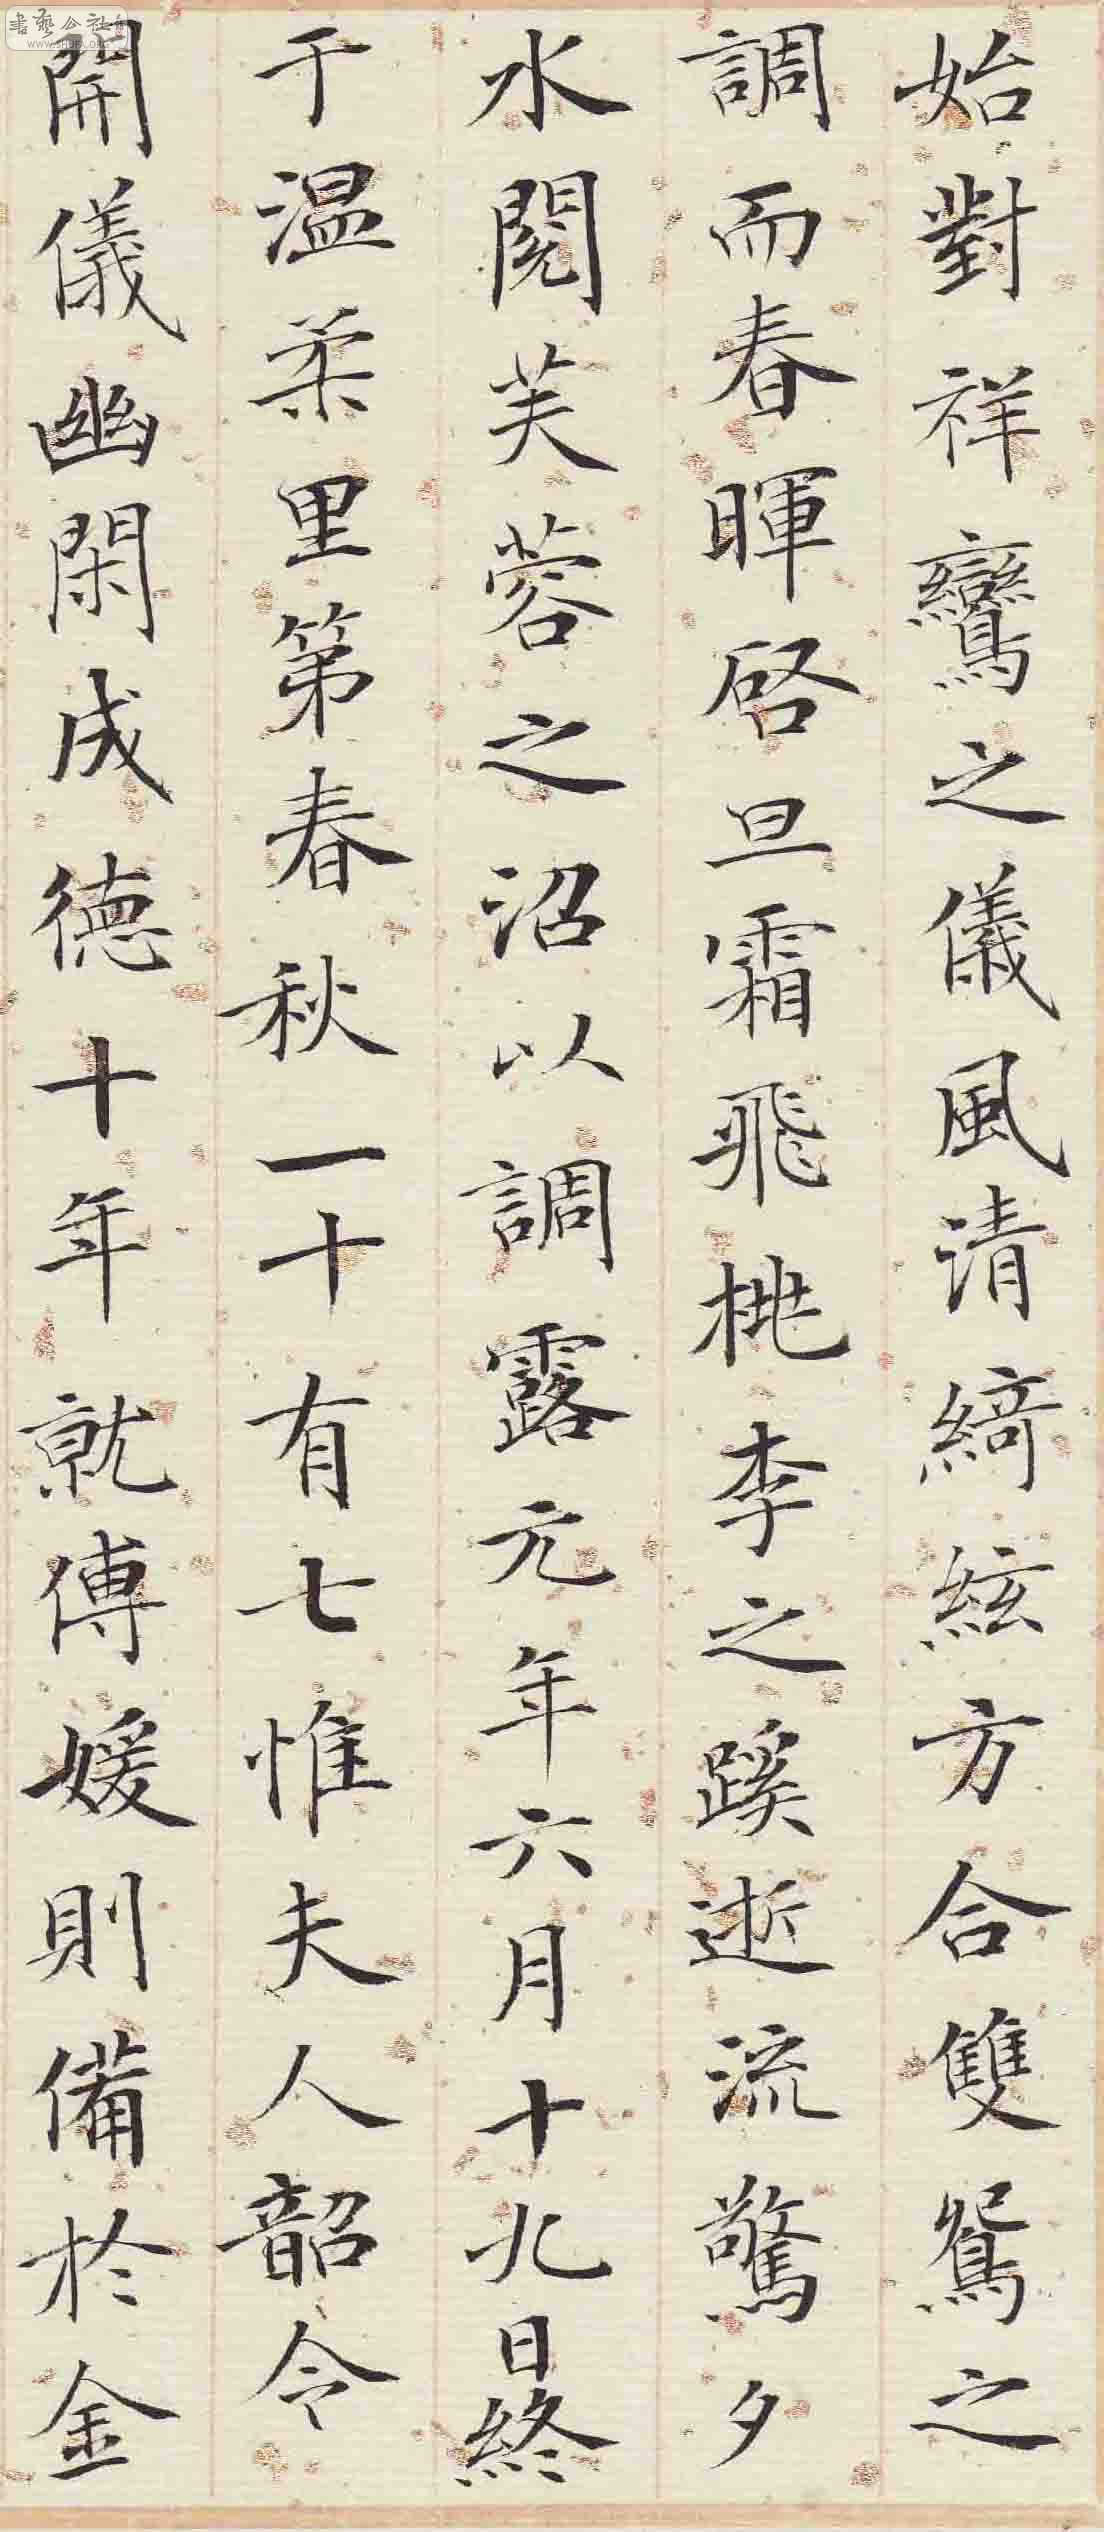 始對祥鸞之儀風清綺絃方合雙鴛之
調而春暉啓旦霜飛桃李之蹊逝流驚夕
水閱芙蓉之沼以調露元年六月十九日終
于温柔里第春秋一十有七惟夫人韶令
開儀幽閑成德十年就傅媛則備於金
書藝公社
WWW.SHUFA.ORG